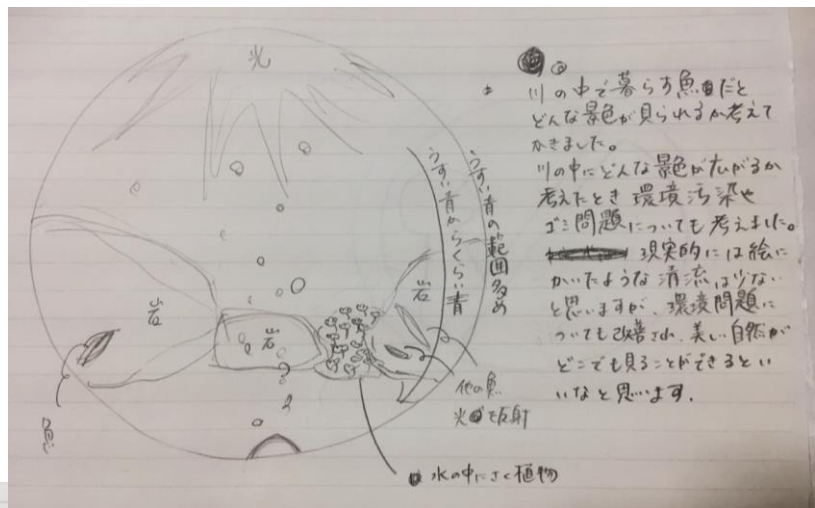 光
うすい青の範囲多め
うすい青からくらい青
岩
岩
岩
魚
他の魚
光を反射
水の中にさく植物
川の中で暮らす魚だと
どんな景色が見られるか考えて
かきました。
川の中にどんな景色が広がるか
考えたとき環境汚染や
ゴミ問題についても考えました。
現実的には絵に
かいたような清流は少ない
と思いますが、環境問題に
ついても改善され、美しい自然が
どこでも見ることができるとい
いなと思います。